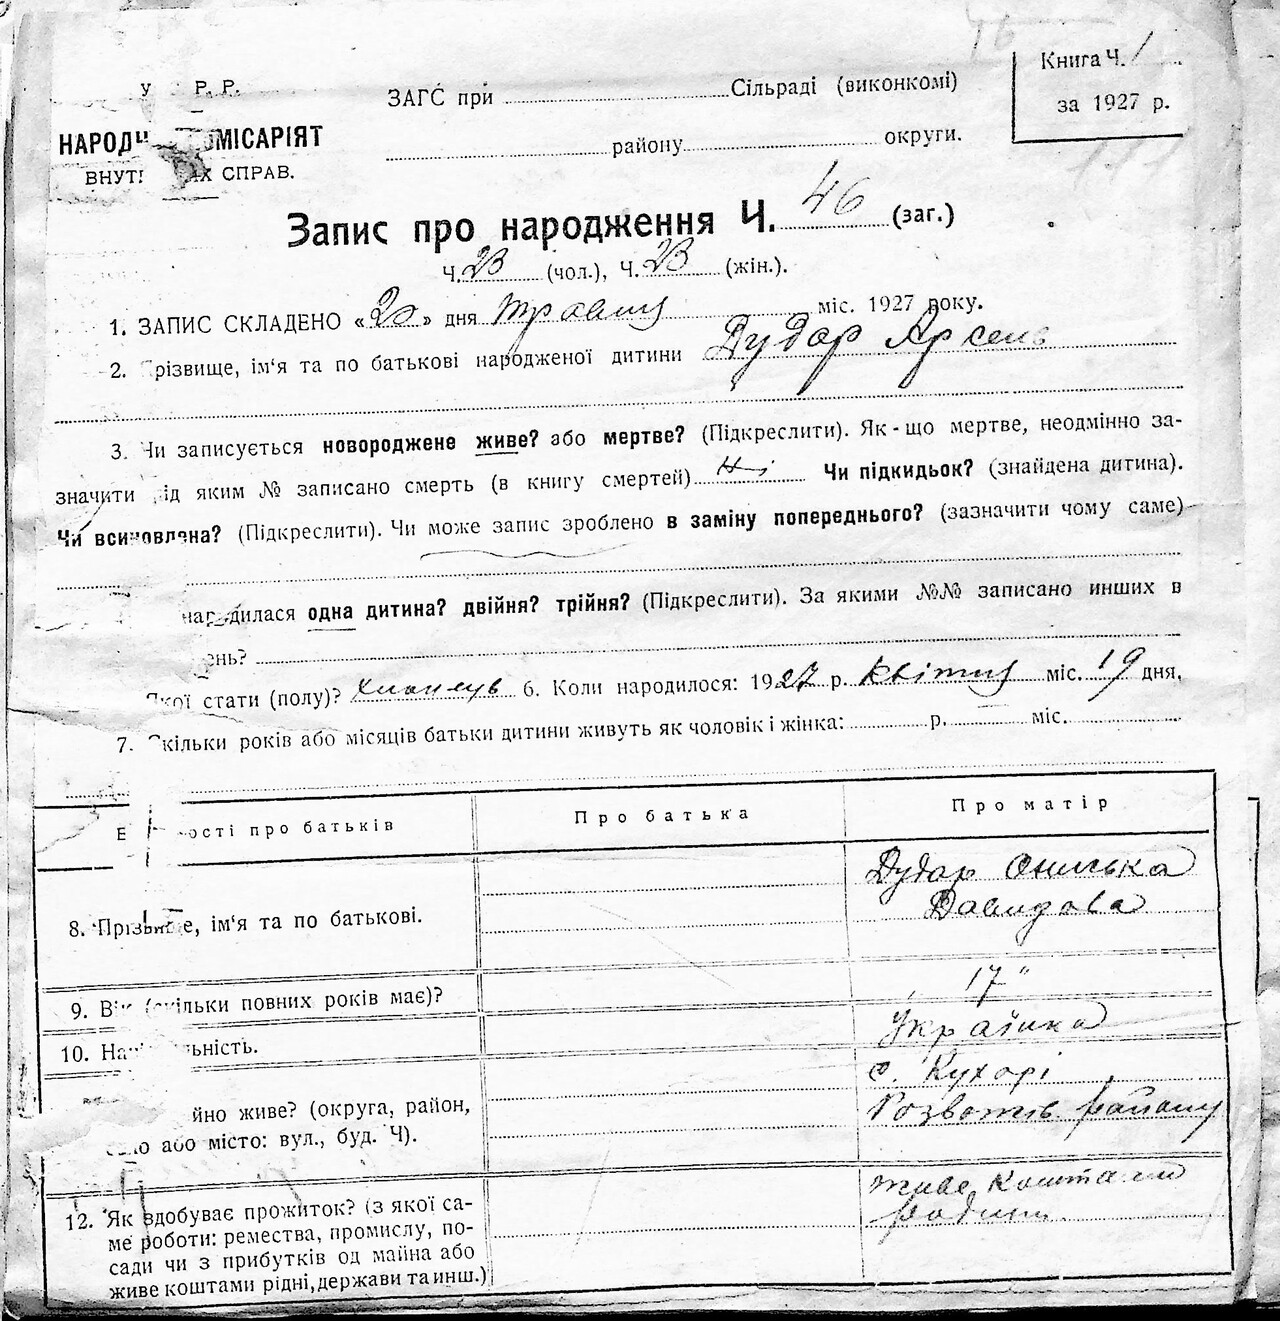 У Р. Р.
НАРОДН ОМІСАРІЯТ
ВНУТ ИХ СПРАВ.
ЗАГС при Сільраді (виконкомі)
району округи.
Книга Ч. 1
за 1927 р.
Запис про народження Ч. 46 (заг.)
Ч. 23 (чол.), Ч. 23 (жін.).
1. ЗАПИС СКЛАДЕНО «20» дня травня міс. 1927 року.
2. Прізвище, ім'я та по батькові народженої дитини Дудар Арсень
3. Чи записується новороджене живе? або мертве? (Підкреслити). Як-що мертве, неодмінно за-
значити під яким № записано смерть (в книгу смертей) ні Чи підкидьок? (знайдена дитина).
Чи всиновлена? (Підкреслити). Чи може запис зроблено в заміну попереднього? (зазначити чому саме)
народилася одна дитина? двійня? трійня? (Підкреслити). За якими №№ записано инших в
ень?
Якої стати (полу)? 6. Коли народилося: 1927 р. Квітня міс. 19 дня,
7. Скільки років або місяців батьки дитини живуть як чоловік і жінка: р. міс.
ості про батьків
Про батька
Про матір
8. Прізвище, ім'я та по батькові.
Дудар Ониська
Давидова
9. Вік (скільки повних років має)?
17"
10. Національність.
Українка
йно живе? (округа, район,
ло або місто: вул., буд. Ч).
с. Кухарі
Розважів району
12. Як здобуває прожиток? (з якої са-
ме роботи: ремества, промислу, по-
сади чи з прибутків од майна або
живе коштами рідні, держави та инш.)
живе коштами
родини